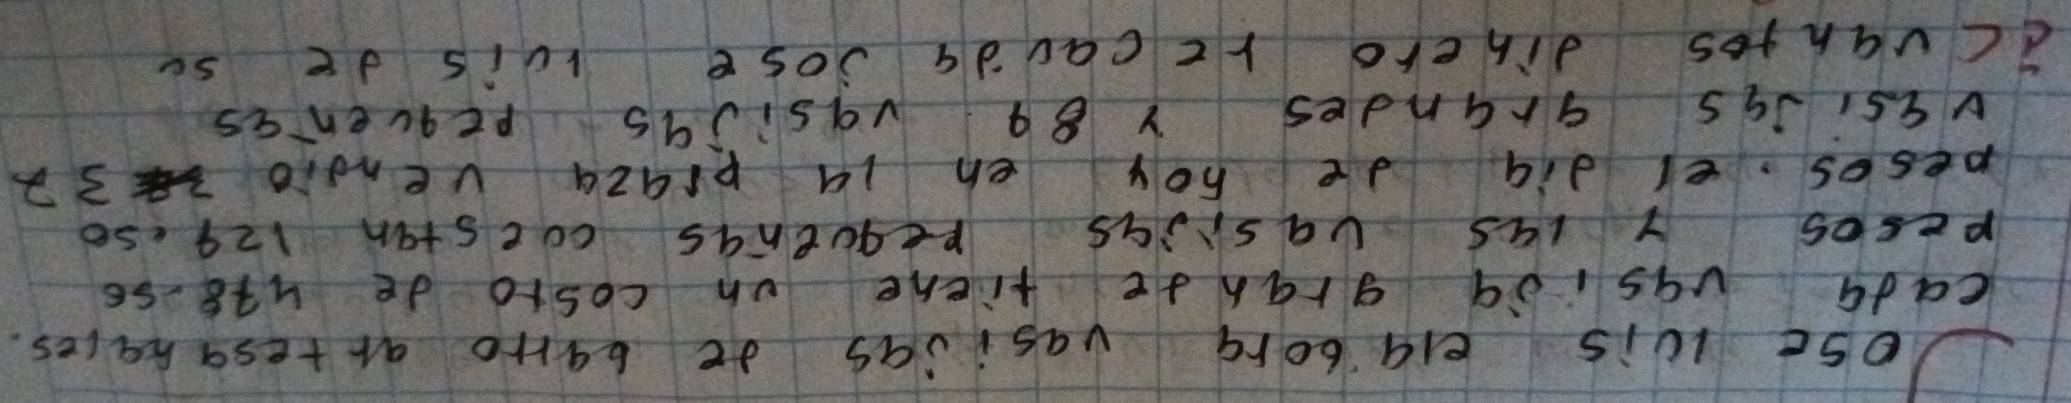 Jose luis elabora vasijas de barro artesanales.
cada vasija grande tiene un costo de 478.50
pesos y las vasijas pequeñas cuestan 129.50
pesos. el dia de hoy en la plaza vendio 37
vasijas grandes y 89 vasijas pequeñas
¿cuantos dinero recauda jose luis de su